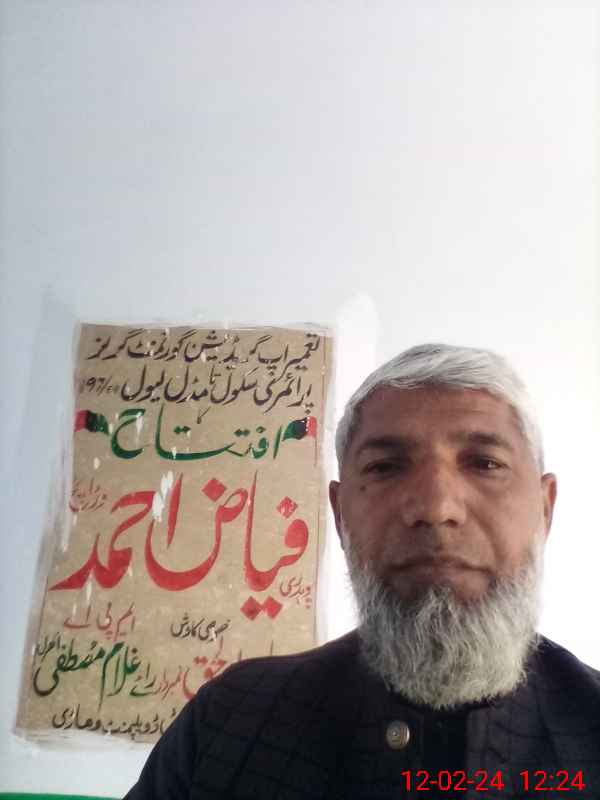 تعمیر اپ گریڈیشن گورنمنٹ گرلز
پرائمری سکول تا مڈل لیول
کا
افتتاح
چوہدری فیاض احمد وڑائچ
ایم پی اے
خصوصی کاوش
الحق نمبردار رائے غلام مصطفیٰ
ڈویلپمنٹ وہاڑی
12-02-24 12:24